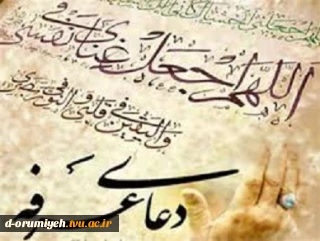 اللهم اجعل غنای فی نفسی
و الیقین فی قلبی و النور فی بصری
دعای عرفه
d-orumiyeh.tvu.ac.ir